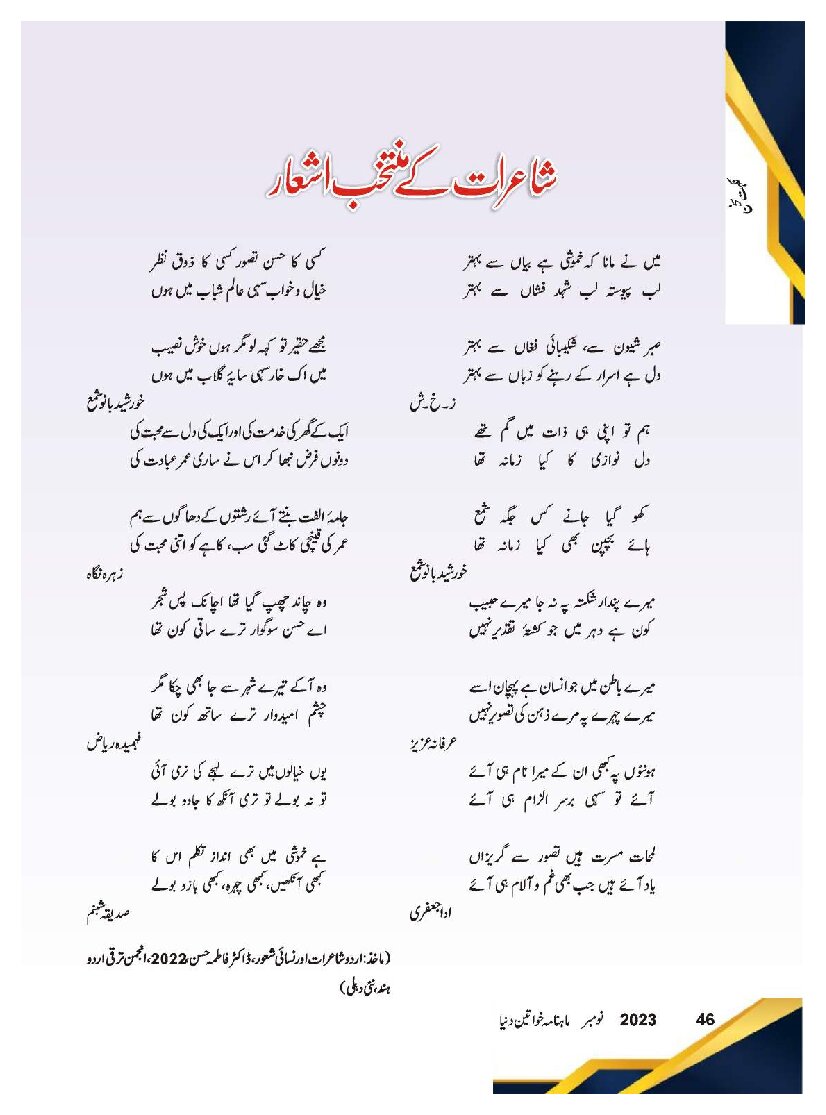 شاعرات کے منتخب اشعار
میں نے مانا کہ خموشی ہے بیاں سے بہتر
لب پیوستہ لب شہد فشاں سے بہتر
صبر شیون سے، شکیبائی فغاں سے بہتر
دل ہے اسرار کے رہنے کو زباں سے بہتر
ز۔خ۔ش
ہم تو اپنی ہی ذات میں گم تھے
دل نوازی کا کیا زمانہ تھا
کھو گیا جانے کس جگہ شمع
ہائے بچپن بھی کیا زمانہ تھا
خورشید بانو شمع
میرے پندار شکستہ پہ نہ جا میرے حبیب
کون ہے دہر میں جو کشتۂ تقدیر نہیں
میرے باطن میں جو انسان ہے پہچان اسے
میرے چہرے پہ مرے ذہن کی تصویر نہیں
عرفانہ عزیز
ہونٹوں پہ کبھی ان کے میرا نام ہی آئے
آئے تو سہی برسر الزام ہی آئے
لمحات مسرت ہیں تصور سے گریزاں
یاد آئے ہیں جب بھی غم و آلام ہی آئے
ادا جعفری
کسی کا حسن تصور کسی کا ذوق نظر
خیال و خواب سہی عالم شباب میں ہوں
مجھے حقیر تو کہہ لو مگر ہوں خوش نصیب
میں اک خار سہی سایۂ گلاب میں ہوں
خورشید بانو شمع
ایک کے گھر کی خدمت کی اور ایک کی دل سے محبت کی
دونوں فرض نبھا کر اس نے ساری عمر عبادت کی
جامۂ الفت بنتے آئے رشتوں کے دھاگوں سے ہم
عمر کی قینچی کاٹ گئی سب، کاہے کو اتنی محبت کی
زہرہ نگاہ
وہ چاند چھپ گیا تھا اچانک پس شجر
اے حسن سوگوار ترے ساقی کون تھا
وہ آکے تیرے شہر سے جا بھی چکا مگر
چشم امیدوار ترے ساتھ کون تھا
فہمیدہ ریاض
یوں خیالوں میں ترے لہجے کی نرمی آئی
تو نہ بولے تو تری آنکھ کا جادہ بولے
ہے خموشی میں بھی انداز تکلم اس کا
کبھی آنکھیں، کبھی چہرہ، کبھی بازو بولے
صدیقہ شبنم
(ماخذ: اردو شاعرات اور نسائی شعور، ڈاکٹر فاطمہ حسن، 2022، انجمن ترقی اردو
ہند، نئی دہلی)
46 2023 نومبر ماہنامہ خواتین دنیا